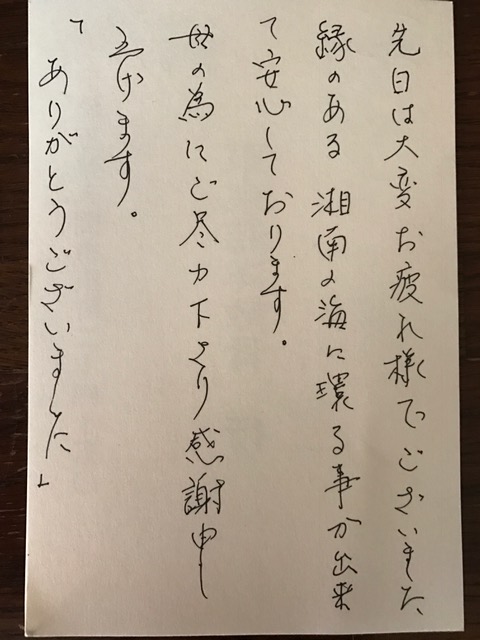 先日は大変お疲れ様でございました
縁のある 湘南の海に環る事が出来
て安心しております。
母の為にご尽力下さり感謝申し
上げます。
「ありがとうございました」